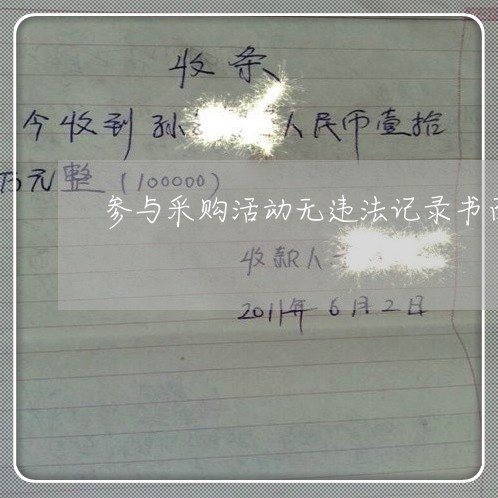 收条
今收到孙 人民币壹拾
万元整(100000)
参与采购活动无违法记录书面
收款人
2011年6月2日